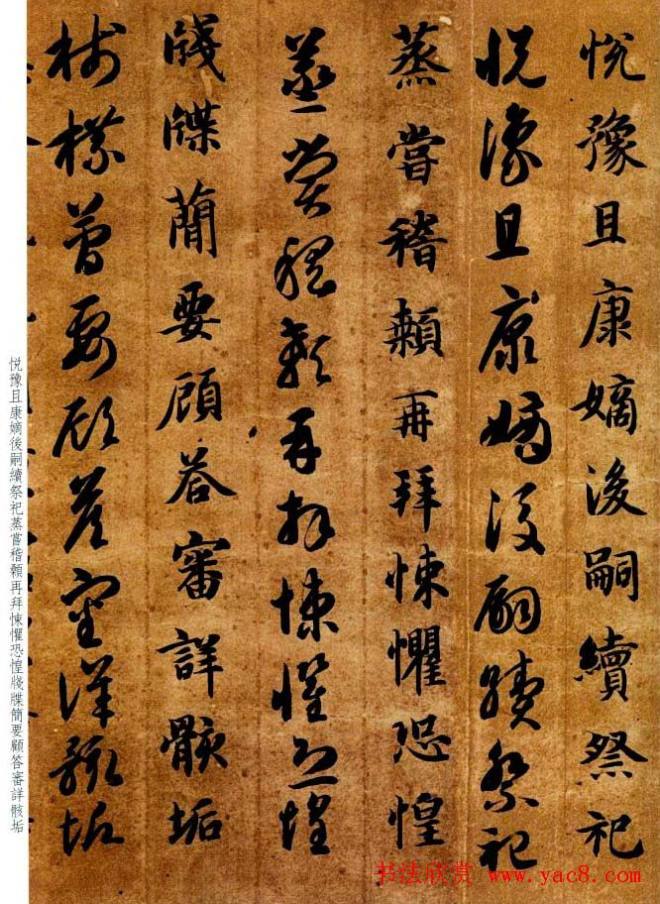 悅豫且康嫡後嗣續祭祀
悅豫且康嫡後嗣續祭祀
蒸嘗稽顙再拜悚懼恐惶
蒸嘗稽顙再拜悚懼恐惶
牋牒簡要顧答審詳骸垢
牋牒簡要顧答審詳骸垢
悅豫且康嫡後嗣續祭祀蒸嘗稽顙再拜悚懼恐惶牋牒簡要顧答審詳骸垢
书法欣赏 www.yac8.com